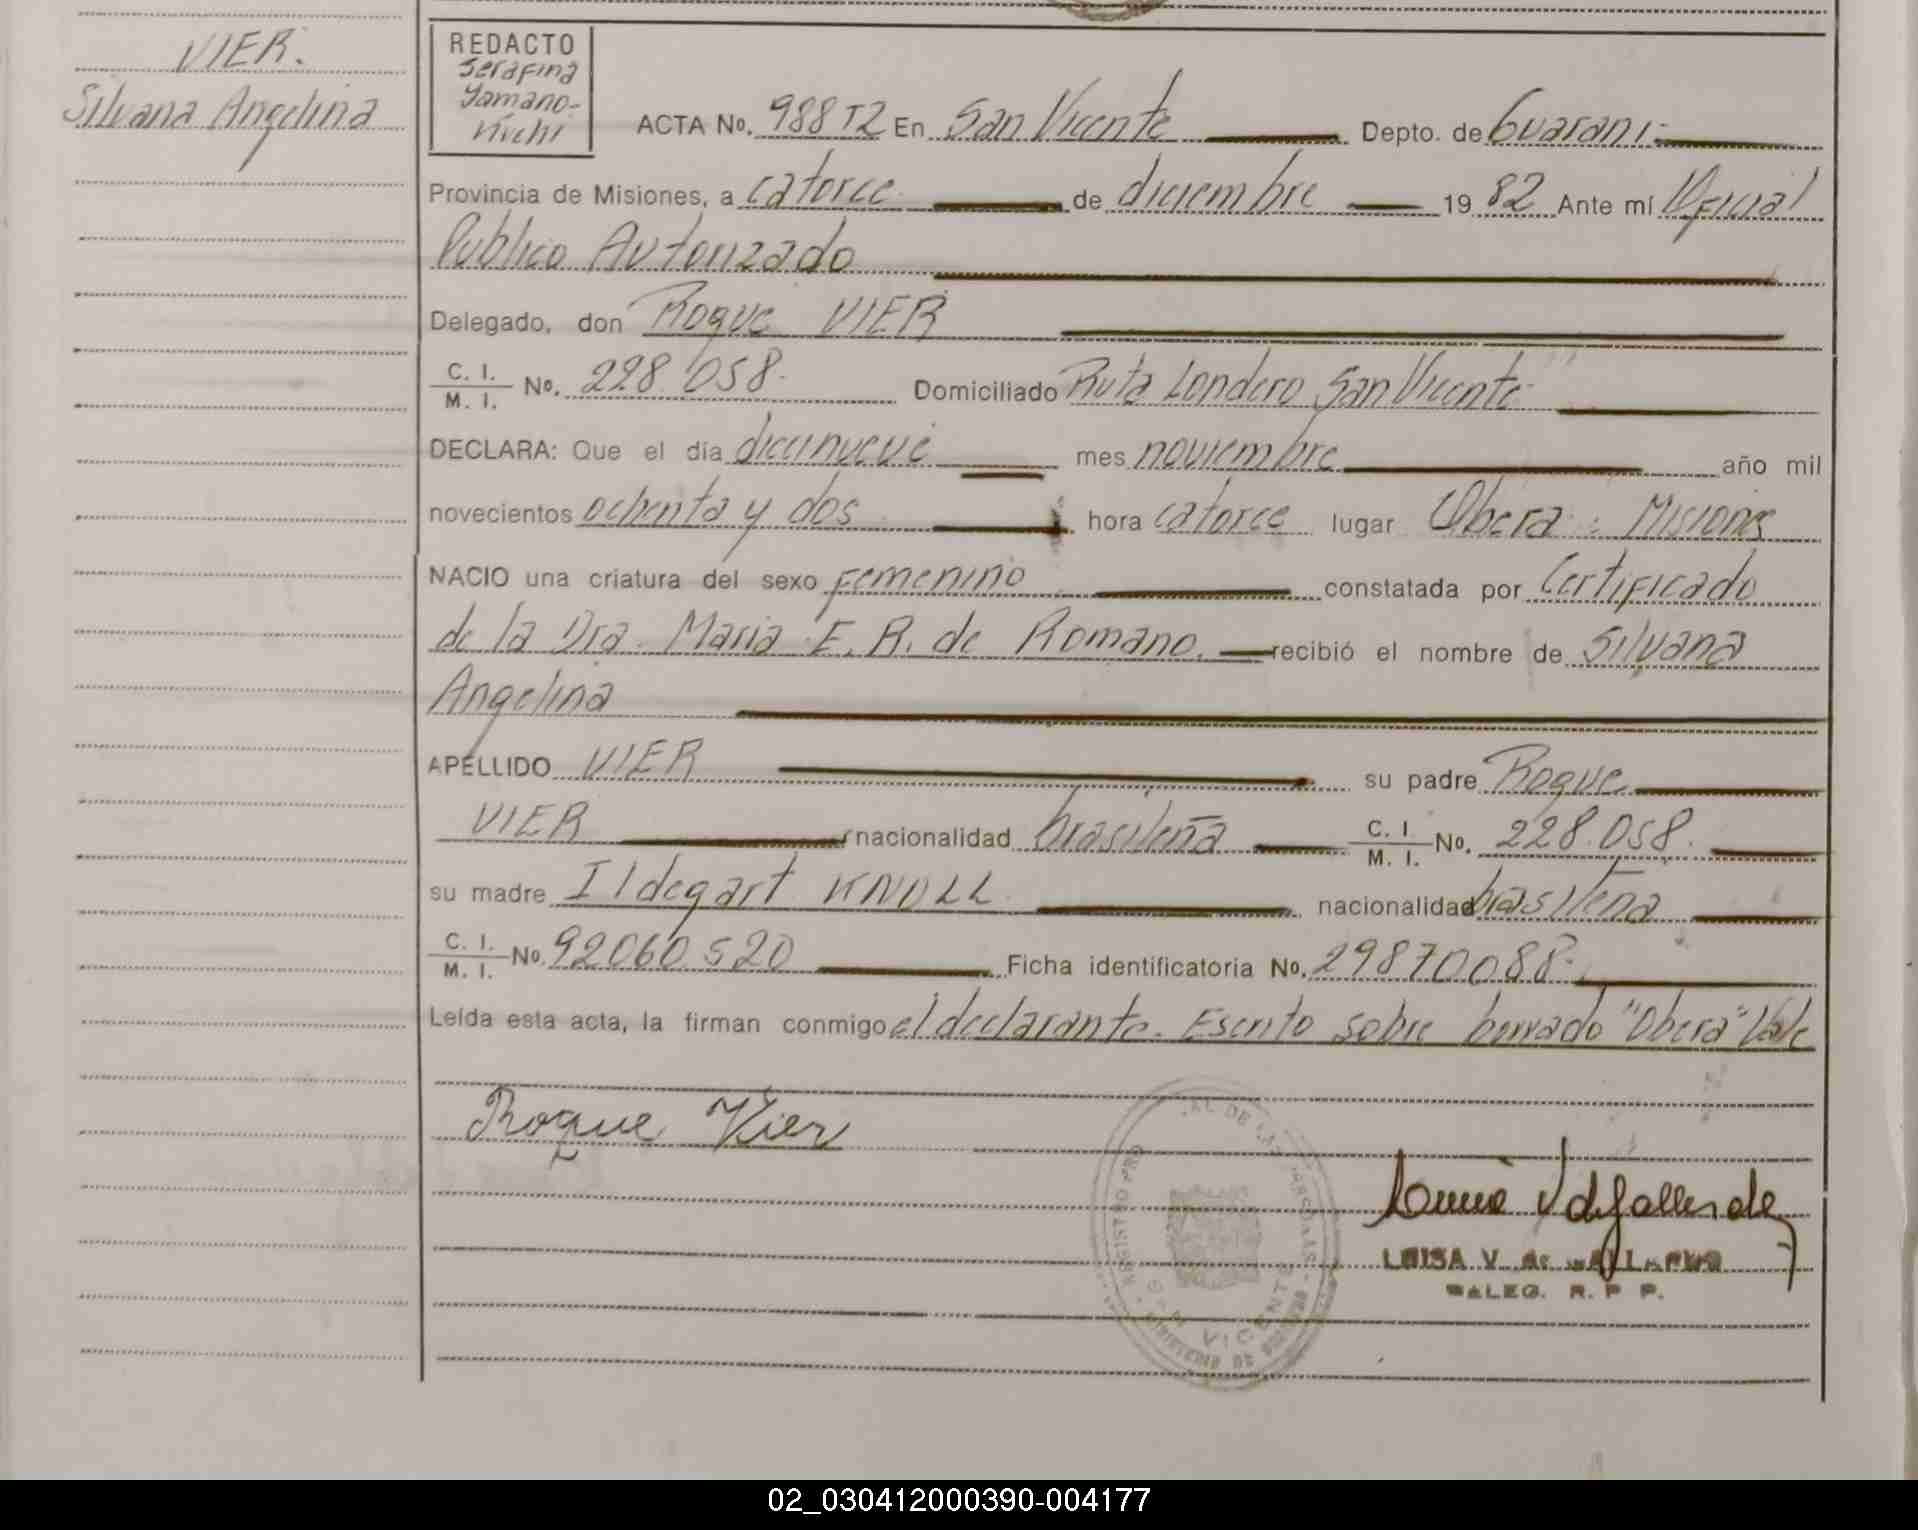 VIER.
Silvana Angelina
REDACTO
Serafina
Yamano-
ACTA No. 988 T2 En San Vicente Depto. de Guarani-
Provincia de Misiones, a catorce de diciembre 19 82 Ante mí Oficial
Publico Autorizado
Delegado, don Roque VIER
C. I.
M. I. No. 228.058. Domiciliado Ruta Londero San Vicente-
DECLARA: Que el día diecinueve mes noviembre año mil
novecientos ochenta y dos hora catorce lugar Obera - Misiones
NACIO una criatura del sexo femenino constatada por Certificado
de la Dra. Maria E. R. de Romano. recibió el nombre de Silvana
Angelina
APELLIDO VIER su padre Roque
VIER nacionalidad brasileña C. I.
M. I. No. 228.058.
su madre Ildegart KNOLL nacionalidad brasileña
C. I.
M. I. No. 92060.520 Ficha identificatoria No. 29870088.
Leída esta acta, la firman conmigo el declarante. Escrito sobre borrado "Obera" Vale
Roque Vier
LUISA V. de
DELEG. R. P. P.
VICENTE
02_030412000390-004177